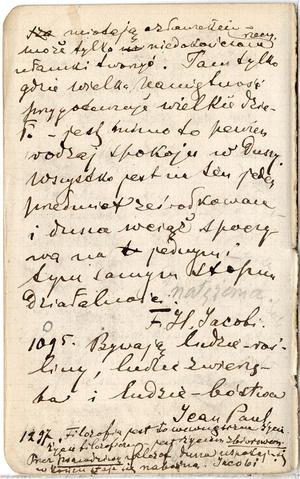 miotają człowiekiem rzeczy
może tylko niedokończone
ułamki tworzyć. Tam tylko
gdzie wielka namiętność
przygotowuje wielkie dzie-
ło - jest mimo to pewien
rodzaj spokoju w duszy
wszystko jest na ten jeden
przedmiot ześrodkowane
i dusza wciąż spoczy-
wa na jednym
tym samym stopniu
działalności. natężenia.
F. H. Jacobi.
1095. Bywają ludzie-roś-
liny, ludzie zwierzę-
ta i ludzie-bóstwa
Jean Paul
1297. Filozofia jest to wewnętrzne życie.
Życie filozoficzne jest życiem
Przez prawdziwą filozof. dusza uspokaja się
w końcu staje się nabożna. Jacobi